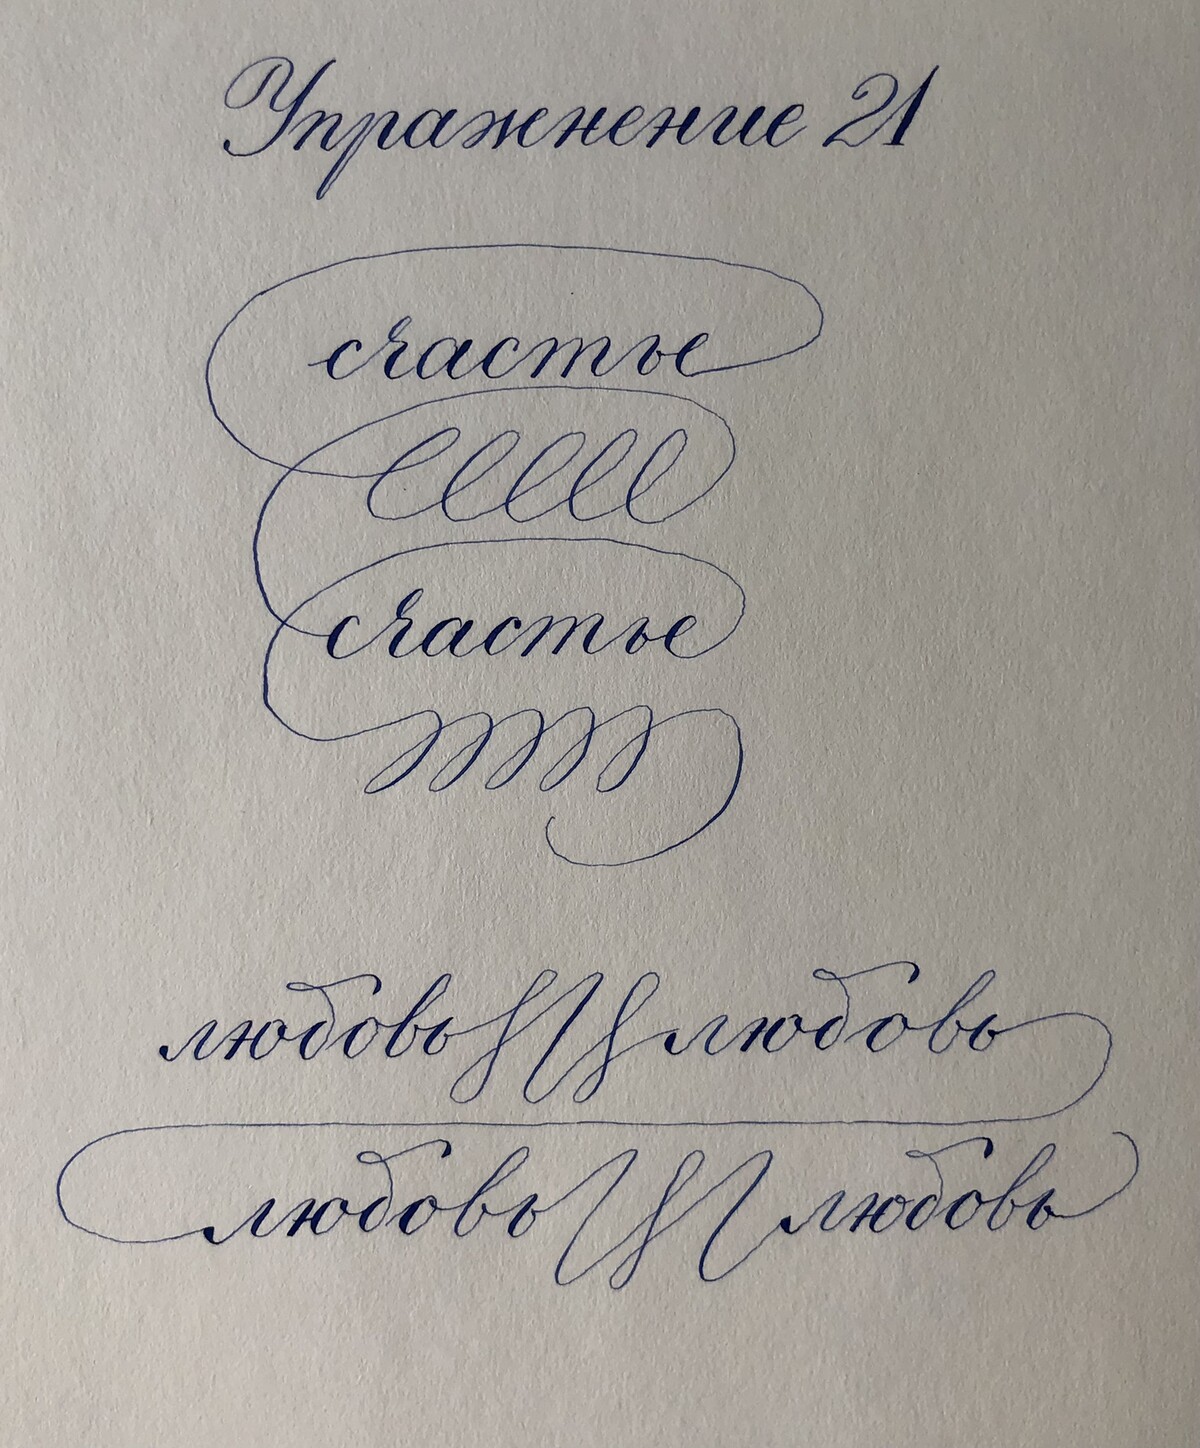 Упражнение 21
счастье
счастье
любовь любовь
любовь любовь